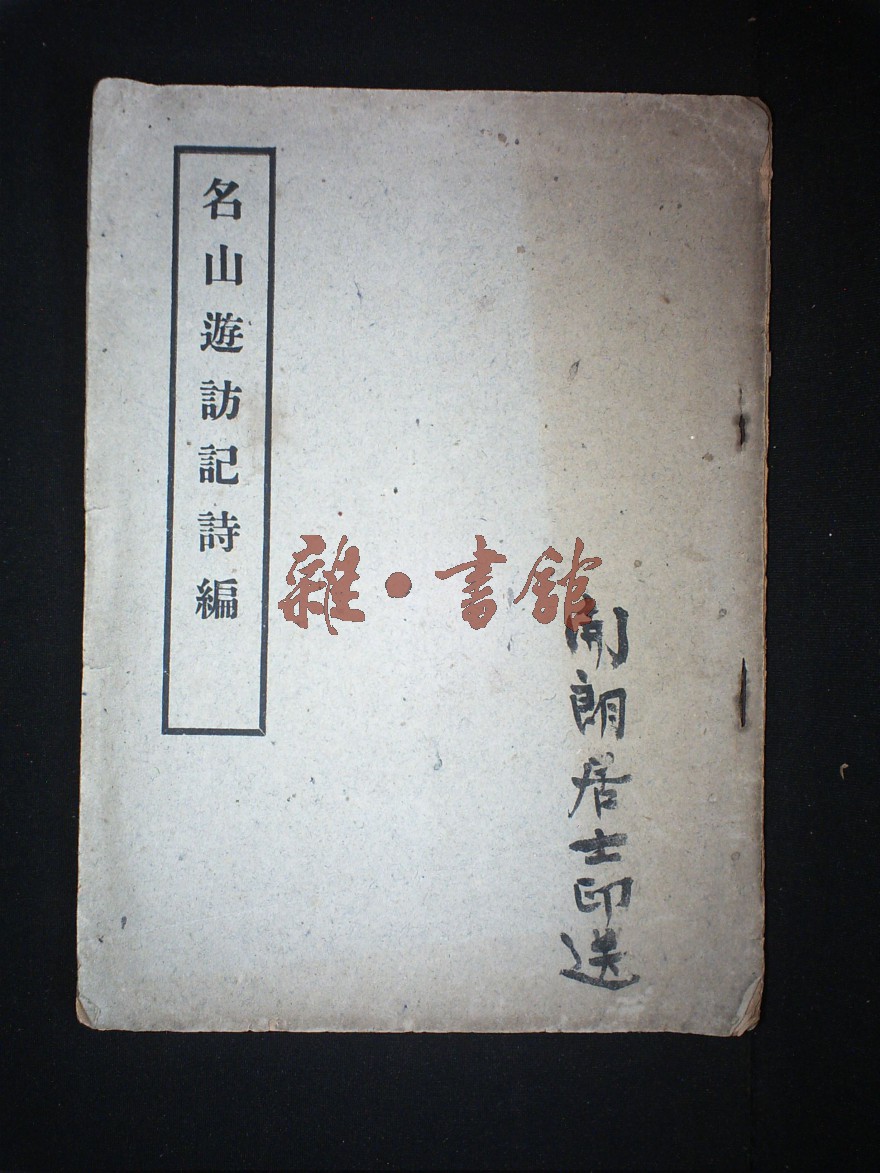 名山遊訪記詩編
雜·書館
開朗居士印送